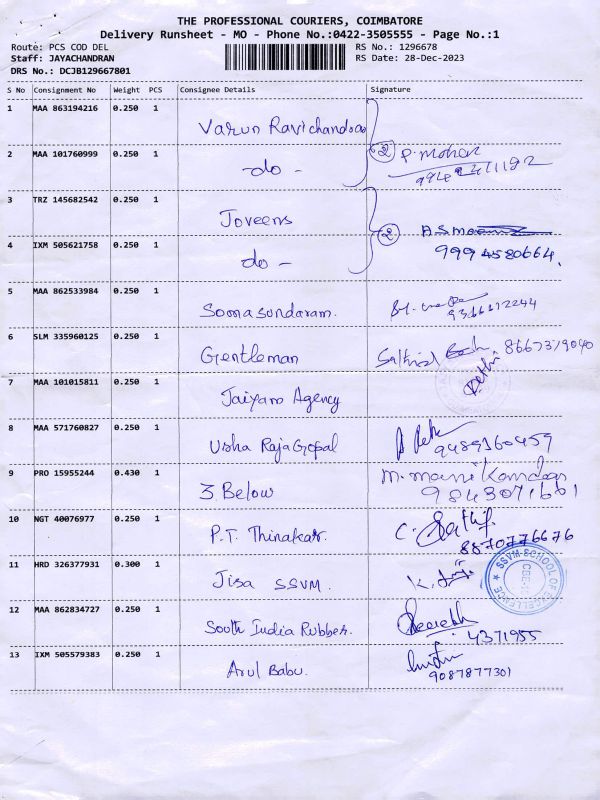 THE PROFESSIONAL COURIERS, COIMBATORE
Delivery Runsheet - MO - Phone No.:0422-3505555 - Page No.:1
Route: PCS COD DEL RS No.: 1296678
Staff: JAYACHANDRAN RS Date: 28-Dec-2023
DRS No.: DCJB129667801
S No Consignment No Weight PCS Consignee Details Signature
1 MAA 863194216 0.250 1 Varun Ravichandran
2 MAA 101760999 0.250 1 -do- 2 P. Mohan
3 TRZ 145682542 0.250 1 Joveens
4 IXM 505621758 0.250 1 do - 2
9994580664.
5 MAA 862533984 0.250 1 Somasundaram.
9366612244
6 SLM 335960125 0.250 1 Gentleman 8667379040
7 MAA 101015811 0.250 1 Jaiyam Agency
8 MAA 571760827 0.250 1 Usha RajaGopal
9489360459
9 PRO 15955244 0.430 1 3 Below M. Manikandan
9843071661
10 NGT 40076977 0.250 1 P.T. Thinakar.
8870776676
11 HRD 326377931 0.300 1 Jisa SSVM. SSVM-SCHOOL OF EXCELLENCE
12 MAA 862834727 0.250 1 South India Rubber.
4371955
13 IXM 505579383 0.250 1 Arul Babu.
9087877301